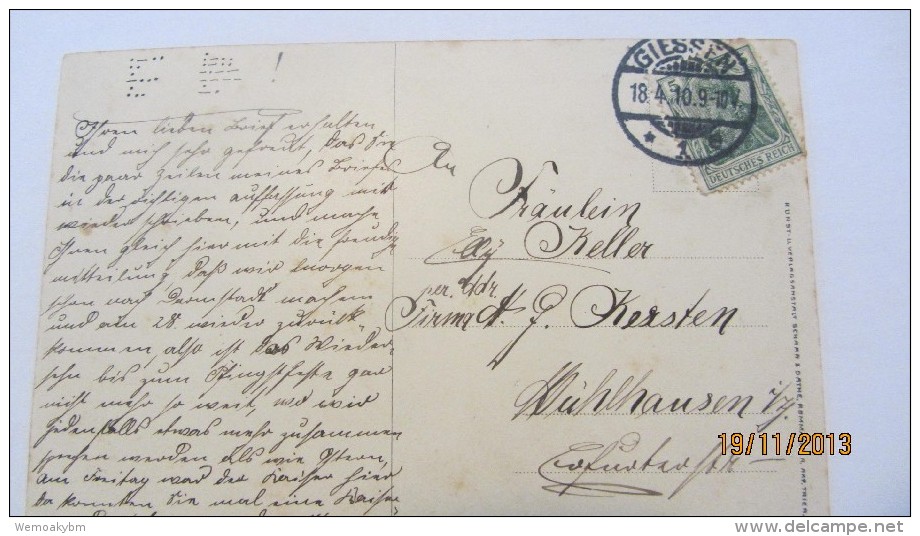 E. E. !
Ihren lieben Brief erhalten
und mich sehr gefreut, das Sie
die paar Zeilen meines Briefes
in der richtigen auffassung mit
wieder schrieben, und mache
Ihnen gleich hier mit die freudige
mitteilung, daß wir morgen
schon nach Darmstadt machen
und am 28. wieder zurück
kommen, also ist das Wieder-
sehn bis zum Pfingstfeste gar
nicht mehr so weit, und wir
jedenfalls etwas mehr zusammen
sprechen werden als wie Ostern,
am Freitag war der Kaiser hier
da konnten Sie mal eine Kaiser
GIESSEN
18.4.10.9-10V.
* 1
DEUTSCHES REICH
An
Fräulein
Elly Keller
per. Adr.
Firma A. J. Kersten
Mühlhausen i/Th.
Erfurter str
KUNST- U. VERLAGSANSTALT SCHAAR & DATHE, KOMM.-GES. A. AKT., TRIER.
19/11/2013
Wemoakybm
delcampe.net